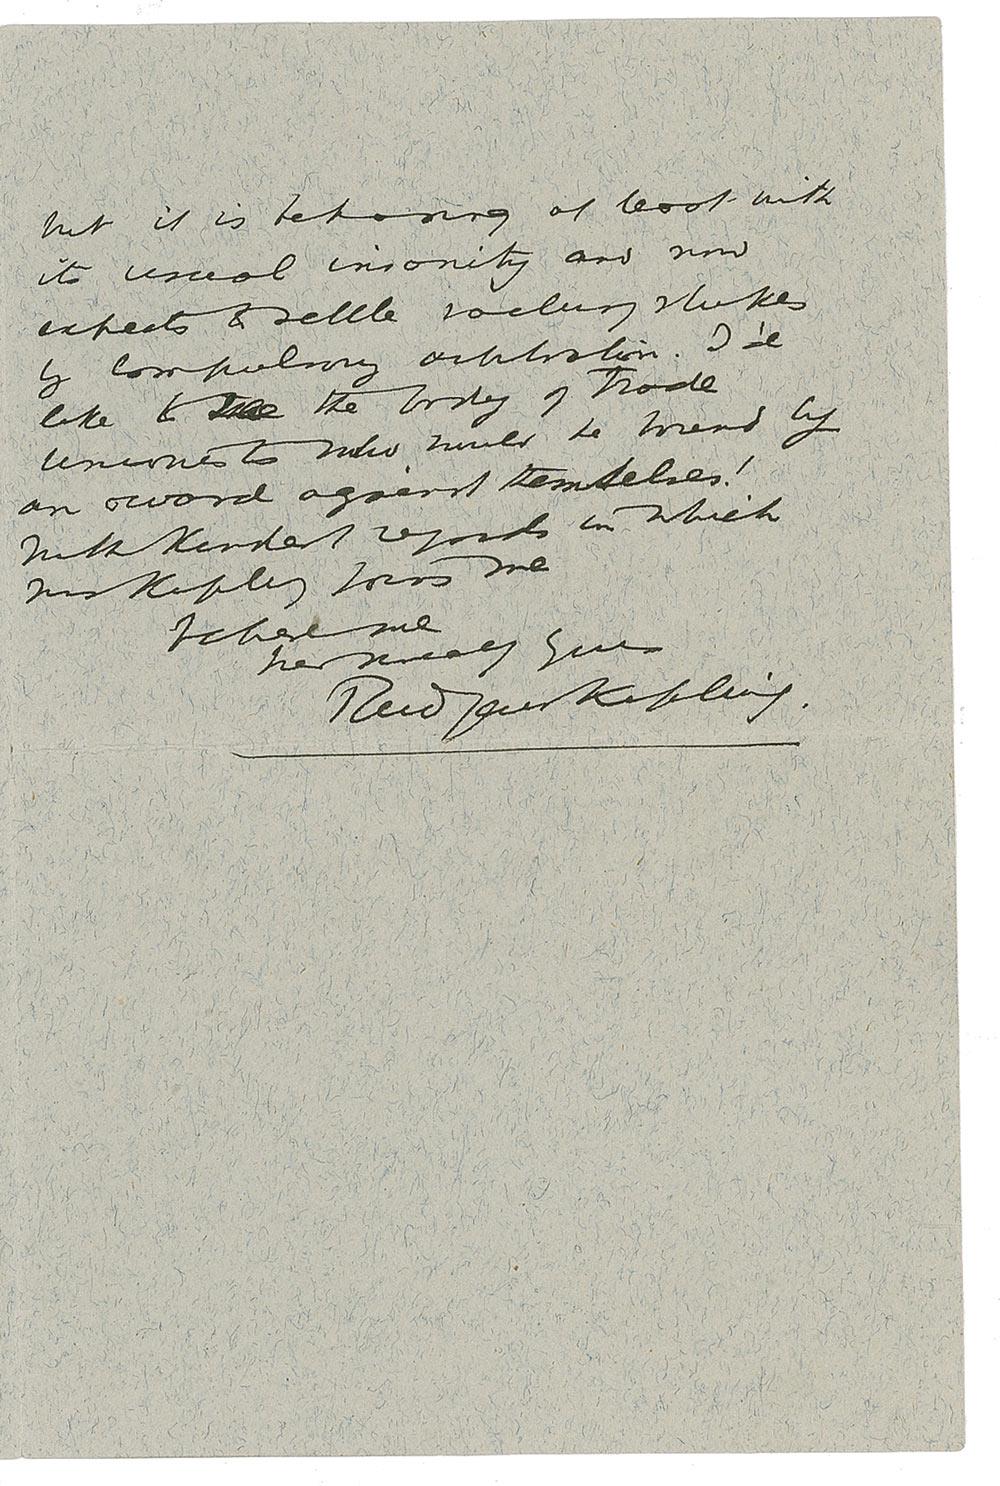 but it is behaving at least with
its usual insanity and now
expects to settle railway strikes
by compulsory arbitration. I'd
like to see the body of Trade
unionists who would be bound by
an award against themselves!
With kindest regards in which
Mrs Kipling joins me
believe me
very sincerely yours
Rudyard Kipling.